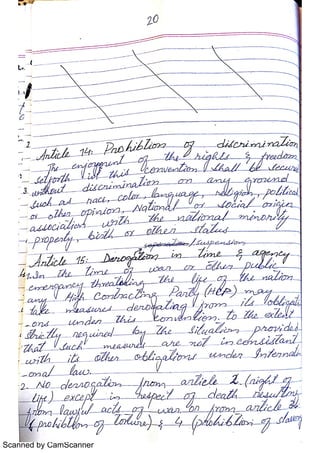 20
Article 14: Prohibtion of discrimination
The enjoyment of the rights & freedom
setforth in this convention shall be secure
without discrimination on any ground
such as race, color, language, religion, political
or other opinion, National or social origin
association with the national minority
, property, birth or other status
/suspension
Article 15: Derogation in time of
1. In the time of war or other public
emergancy threatening the life of the nation
any High Contracting Party (HCP) may
take measures derogating from its obligati
-ons under this convention, to the extent
strictly required by the situation provided
that such measures are not inconsistant
with its other obligations under Internati
-onal law.
2. No derrogation from article 2 (right of
life) except in respect of death resulting
from lawful acts of war or from article 3
(prohibtion of torture) & 4 (prohibtion of slavery
Scanned by CamScanner